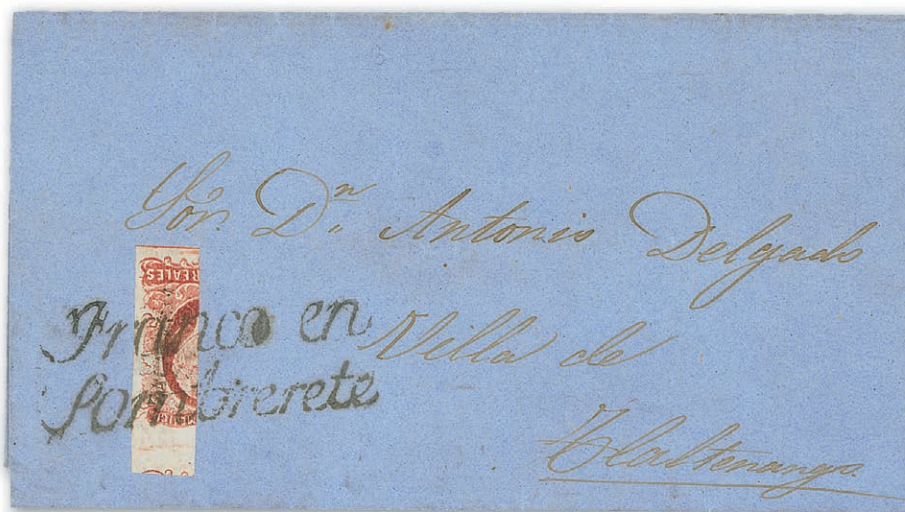 Sor. Dn. Antonio Delgado
REALES
Franco en
Sombrerete
Villa de
Tlaltenango.